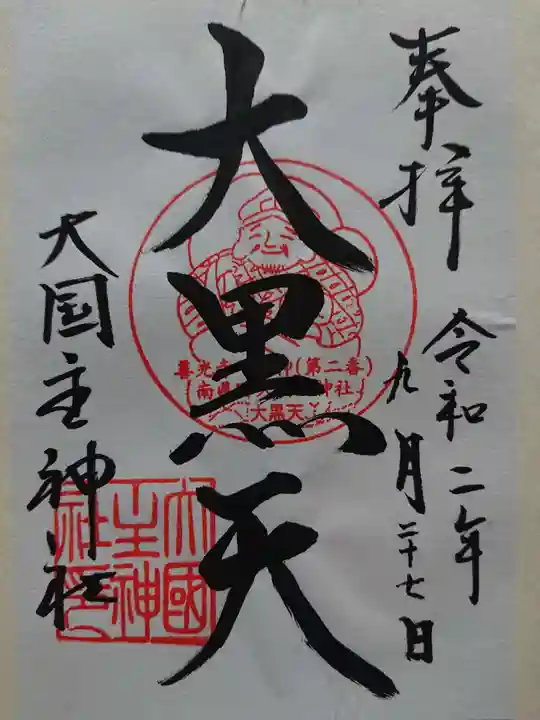 奉拝
令和二年
九月二十七日
大黒天
善光寺 (第二番)
南 神社
大黒天
大国主神社
大國主神社印